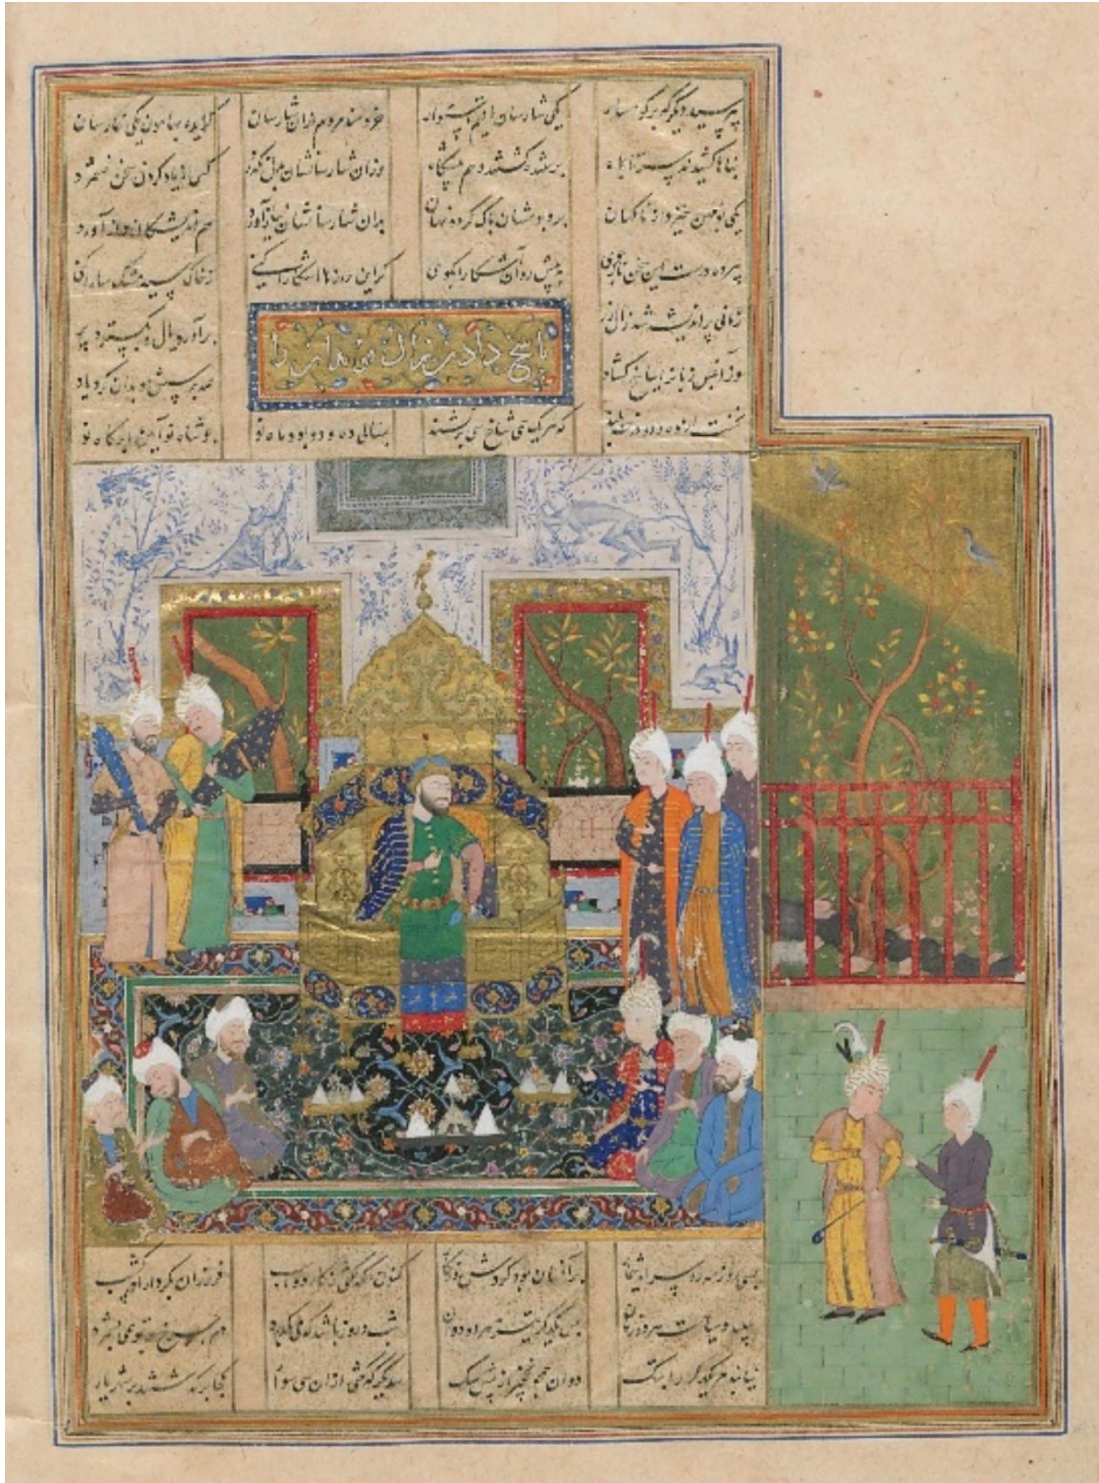 بپرسید دیگر که بر کوهسار یکی شارسان یافتم استوار خردمند مردم ازان شارسان گزیده بهامون یکی خارسان
بناها کشیدند سر تا بماه پرستنده گشتند و هم پیشگاه وزان شارسانشان بدل نگذرد کس از یاد کردن سخن نشمرد
یکی بومهن خیزد از ناگهان بر و بومشان پاک گردد نهان بدان شارسانشان نیاز آورد هم اندیشگان دراز آورد
بپرده درست این سخن باز جوی بپیش ردان آشکارا بگوی گر این رازها آشکارا کنی ز خاک سیه مشک سارا کنی
زمانی پر اندیشه شد زال زر برآورد یال و بگسترد پر
پاسخ دادن زال موبدان را
وزان پس زبان را بپاسخ گشاد همه پرسش موبدان کرد یاد
نخست از ده و دو درخت بلند که هر یک همی شاخ سی برکشند بسالی ده و دو بود ماه نو چو شاه نو آیین ابر گاه نو
بسی روز مه را سر آید شمار برین سان بود گردش روزگار کنون آنکه گفتی ز کار دو اسپ فروزان بکردار آذرگشسپ
سپید و سیاهست هر دو زمان پس یکدگر تیز هر دو دوان شب و روز باشد که می بگذرد دم چرخ بر تو همی بشمرد
نیابند مر یکدگر را بتگ دوان همچو نخچیر از پیش سگ سدیگر که گفتی ازان سی سوار کجا برگذشتند بر شهریار